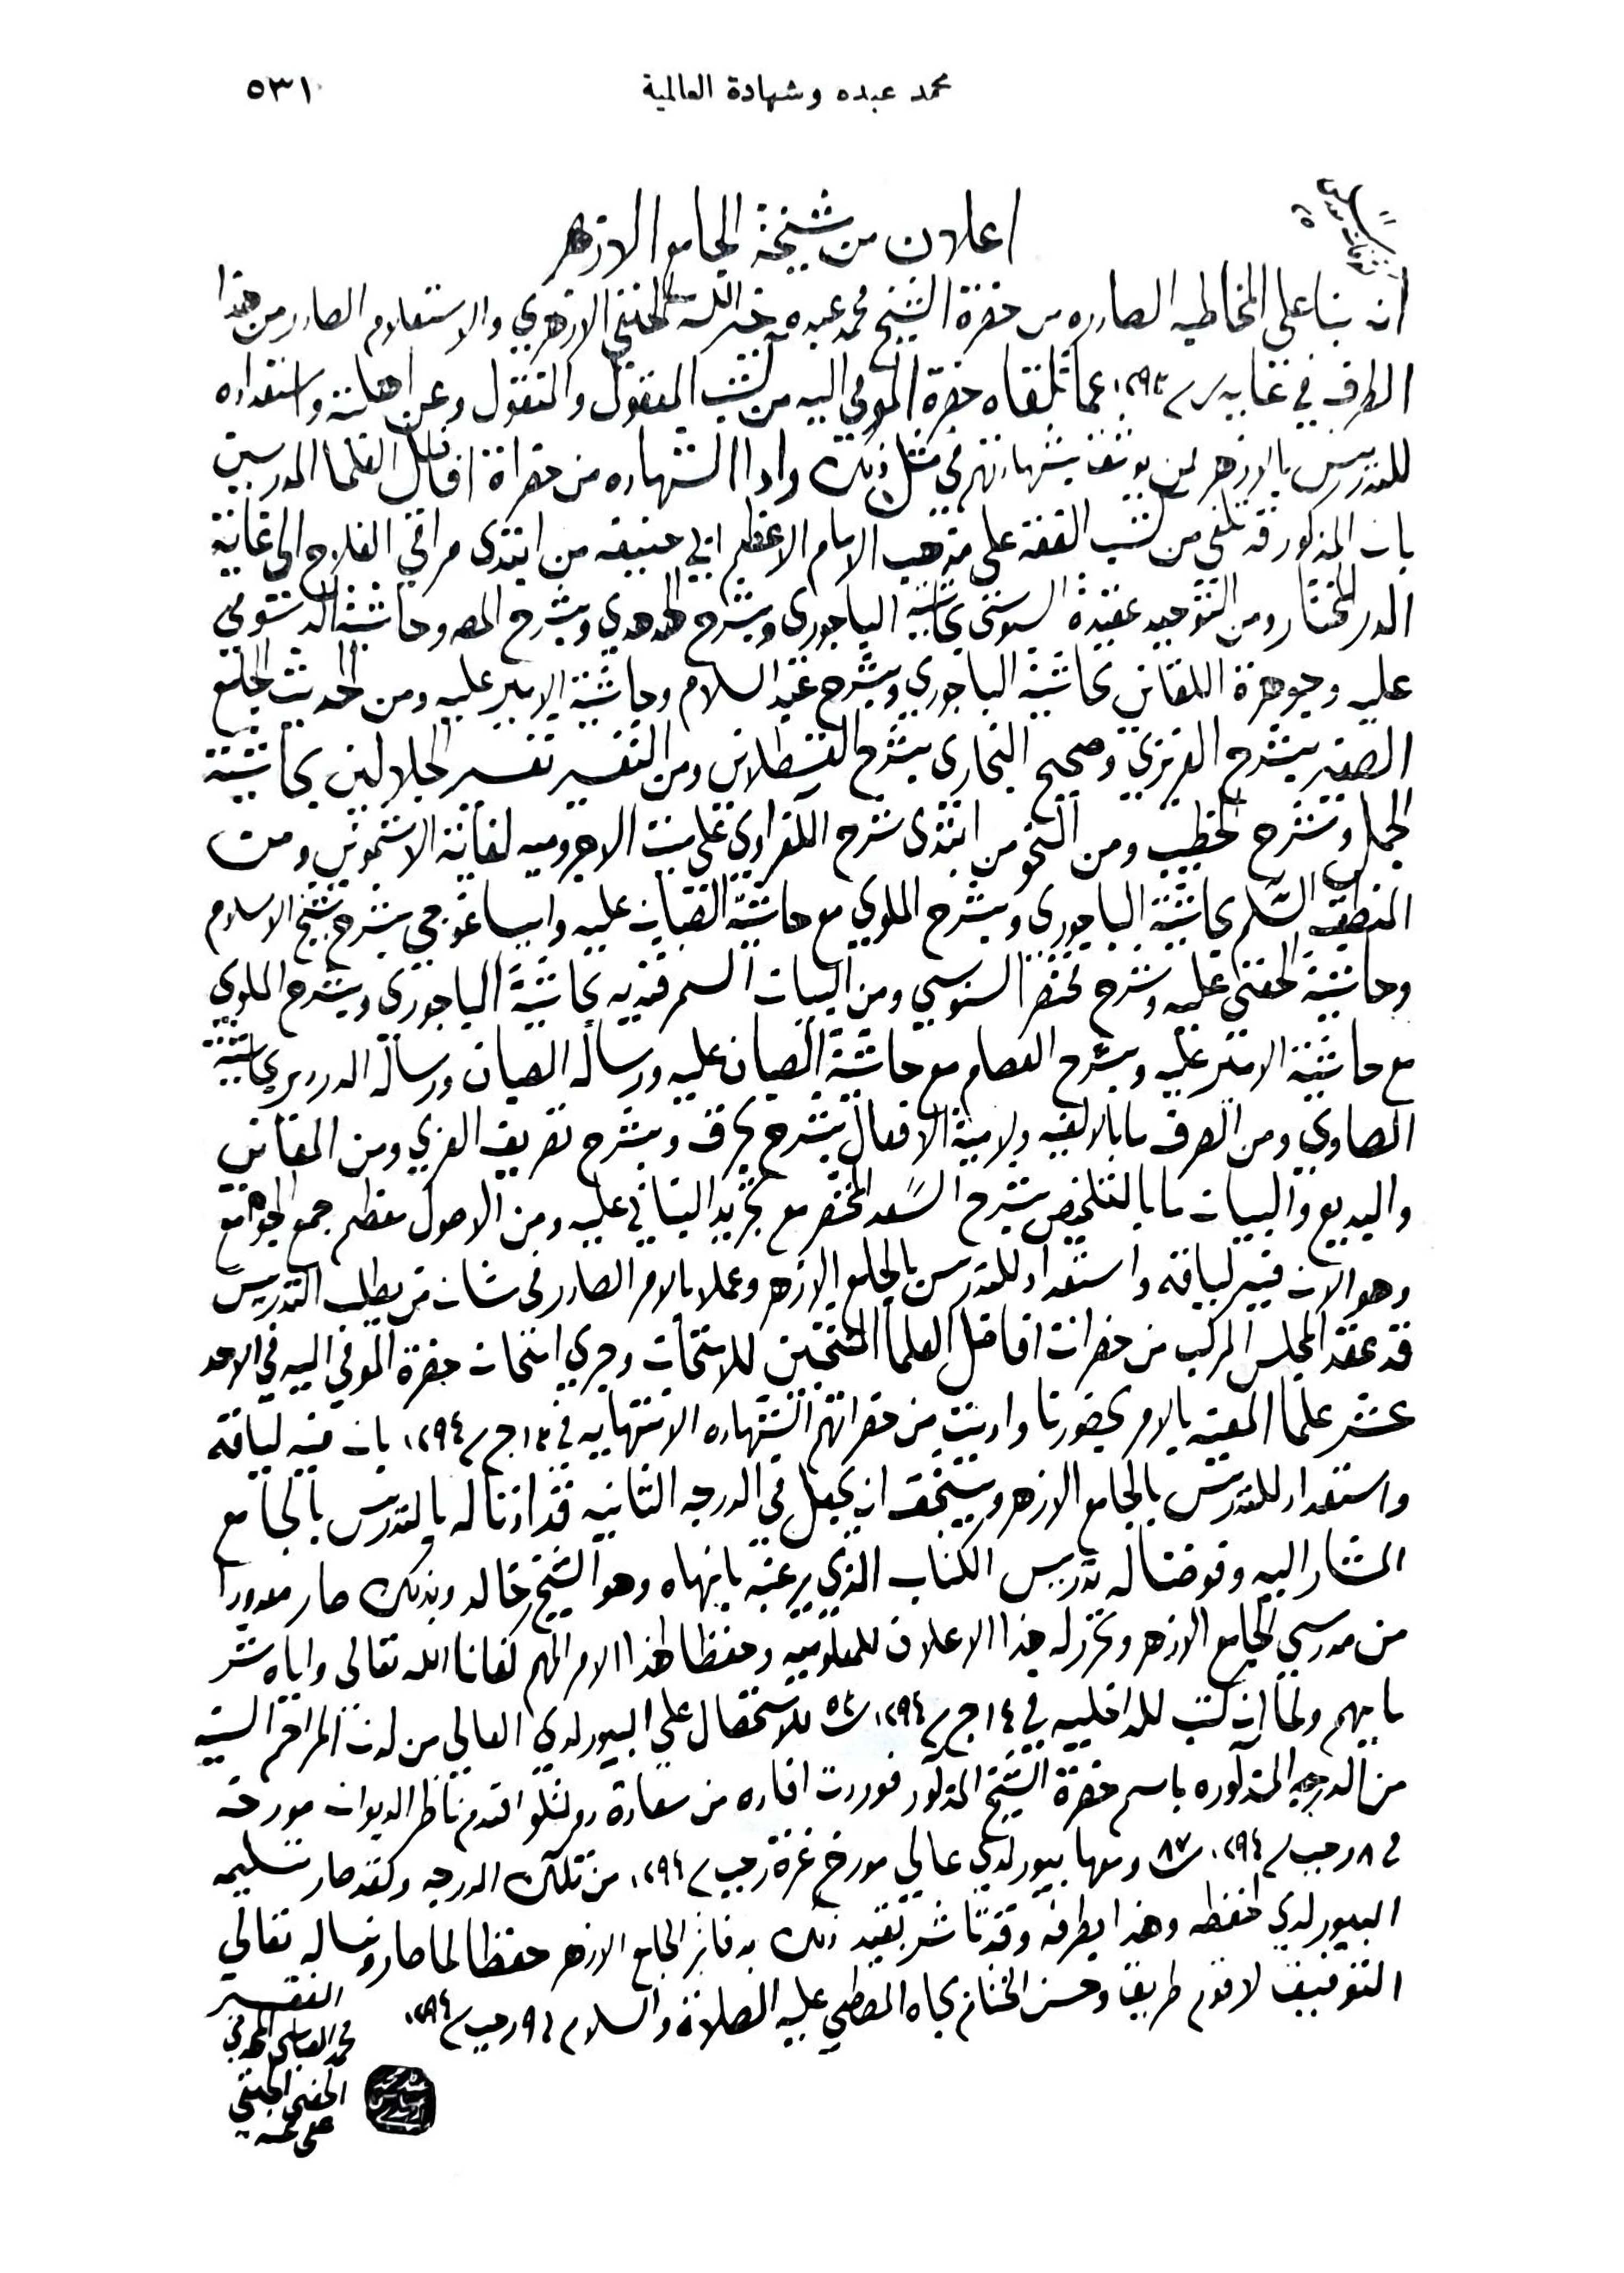 محمد عبده وشهادة العالمية
٥٣١
اعلان من مشيخة الجامع الازهر
انه بنا على المخاطبه الصادره من حضرة الشيخ محمد عبده خير الله الحنفي الازهري والاستعلام الصادر من هذا
الطرف في غايه ر سنة ١٢٩٣ عما تلقاه حضرة المومي اليه من كتب المعقول والمنقول وعن اهليته واستعداده
للتدريس بالازهر لمن يوثق بشهادتهم في مثل ذلك واداا الشهاده من حضراة افاضل العلما المدرسين
بان المذكور قد تلقي من كتب الفقه على مذهب الامام الاعظم ابي حنيفه من ابتدى مراقي الفلاح الى غاية
الدر المختار ومن التوحيد عقيدة السنوسى بحاشية الباجورى وبشرح الهدهدي وبشرح المص وحاشية الدسوقي
عليه وجوهرة اللقانى بحاشية الباجوري وبشرح عبد السلام وحاشية الامير عليه ومن الحديث الجامع
الصغير بشرح العزيزي وصحيح البخارى بشرح القسطلانى ومن التفسير تفسير الجلالين بحاشية
الجمل وشرح الخطيب ومن النحو من ابتدى شرح الكفراوي على متن الاجروميه لغاية الاشمونى ومن
المنطق السلم بحاشية الباجورى وبشرح الملوي مع حاشية الصبان عليه وايساغوجي بشرح شيخ الاسلام
وحاشية الحفنى عليه وشرح مختصر السنوسي ومن البيان السمرقنديه بحاشية الباجورى وبشرح الملوي
مع حاشية الامير عليه وبشرح العصام مع حاشية الصبان عليه ورسالة الصبان ورسالة الدردير بحاشية
الصاوي ومن الصرف ما بالالفيه ولامية الافعال بشرح بحرق وبشرح تصريف العزي ومن المعانى
والبديع والبيان ما بالتلخيص بشرح السعد المختصر مع تجريد البنانى عليه ومن الاصول معظم جمع الجوامع
وهو الان فيه لياقه واستعداد للتدريس بالجامع الازهر وعملا بالامر الصادر فى شان من يطلب التدريس
قد عقد المجلس المركب من حضرات افاضل العلما المنتخبين للامتحان وجري امتحان حضرة المومي اليه في الاحد
عشر علما المعينه بالامر بحضورنا واديت من حضراتهم الشهاده الانتهاييه في ١٣ ج سنة ١٢٩٤ بان فيه لياقه
واستعداد للتدريس بالجامع الازهر ويستحق ان يجعل في الدرجه الثانيه فقد اذنا له بالتدريس بالجامع
المشار اليه وفوضنا له تدريس الكتاب الذي يرغبه بانهاه وهو الشيخ خالد وبذلك صار معدودا
من مدرسي الجامع الازهر وتحرر له هذا الاعلان للمعلوميه وحفظا لهذا الامر المهم كفانا الله تعالى واياه شر
ما يهم ولما ان كتب للداخليه في ١٤ ج سنة ١٢٩٤ للاستحصال على البيورلدي العالي من لدن المراحم السنيه
من الدرجه المذكوره باسم حضرة الشيخ المذكور فوردت افاده من سعادة دولتلو افندم ناظر الديوان مورخه
في ٨ رجب سنة ١٢٩٤ ن ٨٧ ومعها بيورلدي عالي مورخ غرة رجب سنة ١٢٩٤ من تلك الدرجه وكقد صار تسليمه
البيورلدي لحفظه وهذا بطرفه وقد تاشر بقيد ذلك بدفاتر الجامع الازهر حفظا لما صار ونساله تعالي
التوفيق لاقوم طريق وحسن الختام بجاه المصطفي عليه الصلاة والسلام في ٩ رجب سنة ١٢٩٤
الفقير
محمد العباسى المهدي
الحفنى الحنفي
عفى عنه